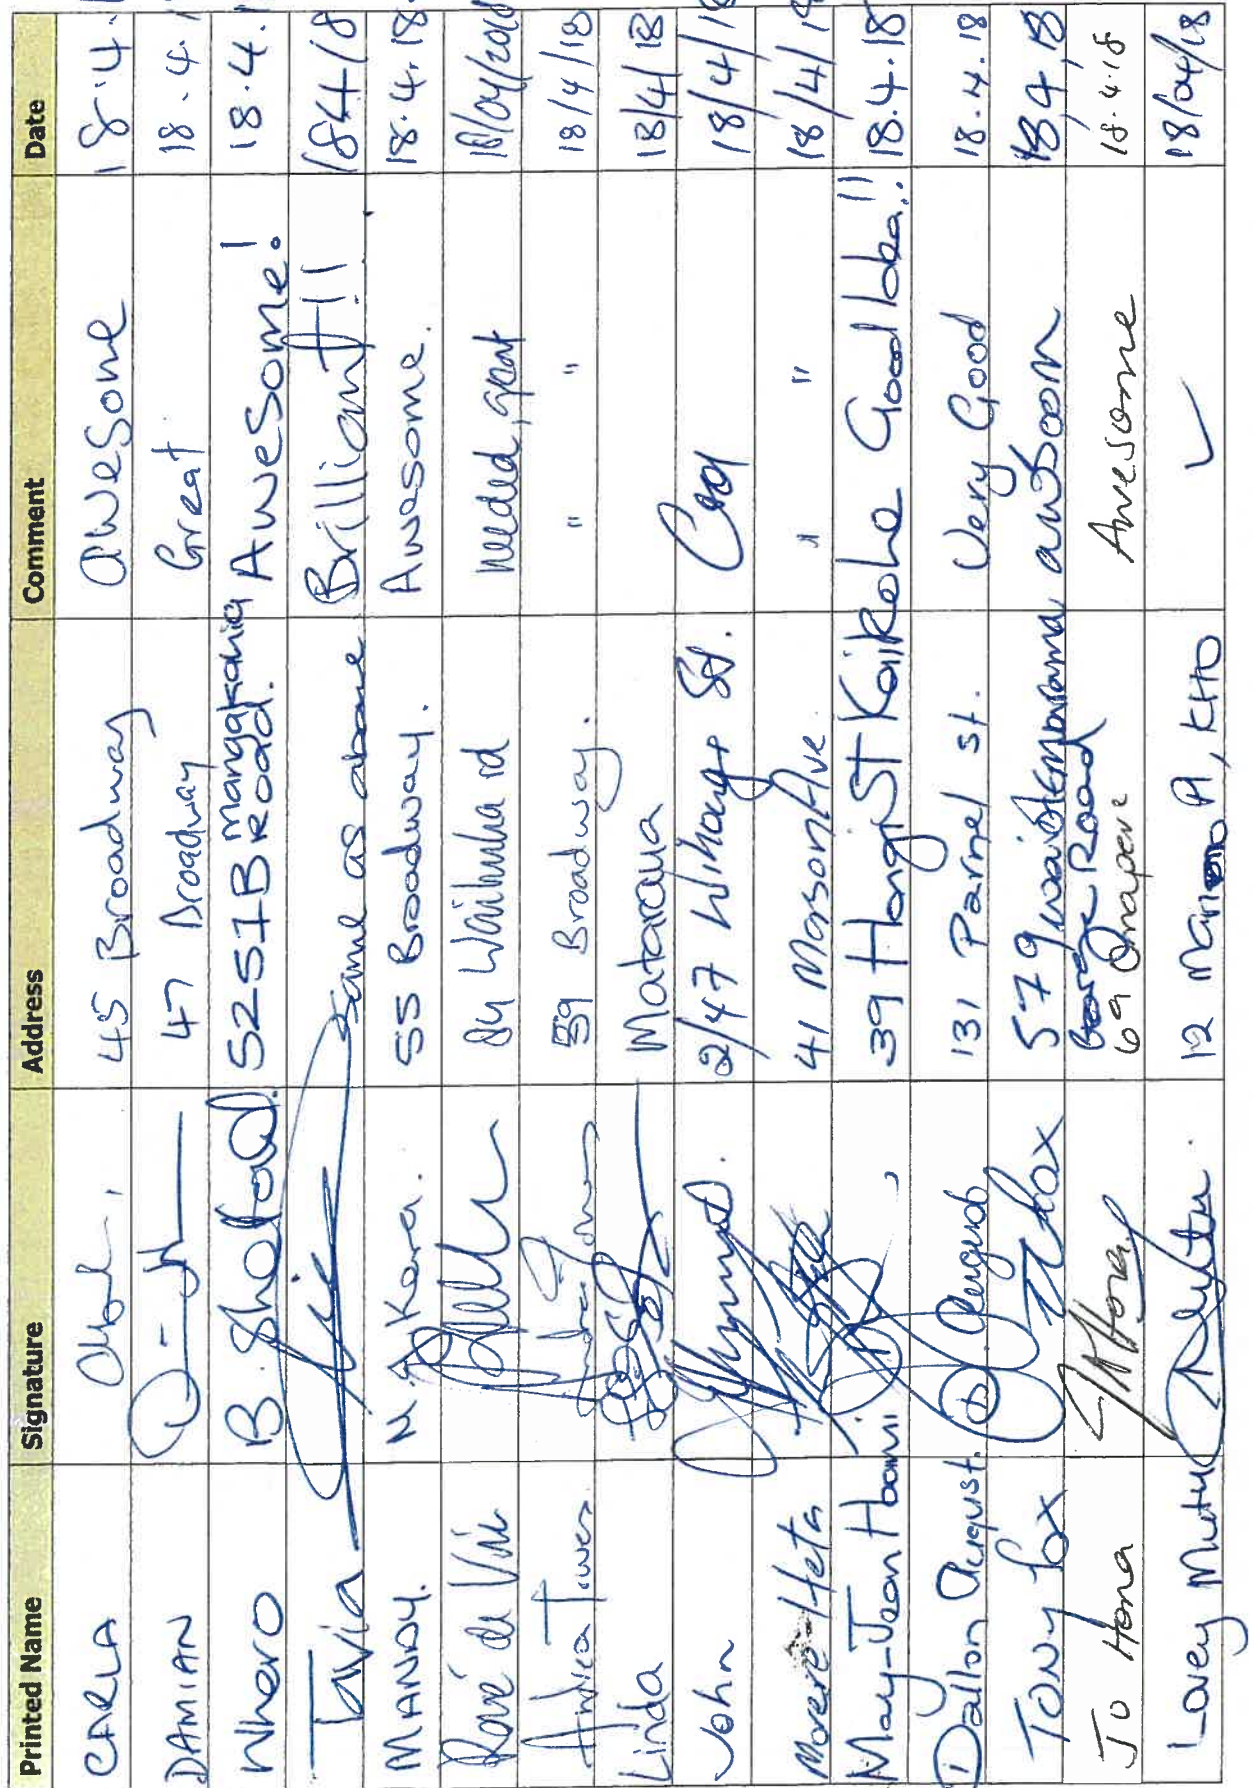 Printed Name Signature Address Comment Date
CARLA 45 Broadway awesome 18.4.
DAMIAN 47 Broadway Great 18.4.
Whero B. Shelford. 5251B Mangakahia Road. AweSome! 18.4.
Tavia Same as above Brilliant!! 18418
MANDY. M. Kara. 55 Broadway. Awesome. 18.4.18
René de Vri Waihulu rd needed, great 18/04/2018
Andrea Tower 59 Broadway. " " 18/4/18
Linda Mataraua 18/4/18
John 2/47 Wihongi St. Cool 18/4/18
Moere-Heta 41 Marson Ave " " 18/4/18
May-Jean Hoani 39 Hongi St Kaikohe Good Idea!! 18.4.18
Dallon August. D August 131 Parnel st. Very Good 18.4.18
Tony Fox 579 George Road awsoom 18,4,18
Jo Hona J Hona 69 Omapere Awesome 18.4.18
Lovey Mutu 12 Pl, KHO ✓ 18/04/18